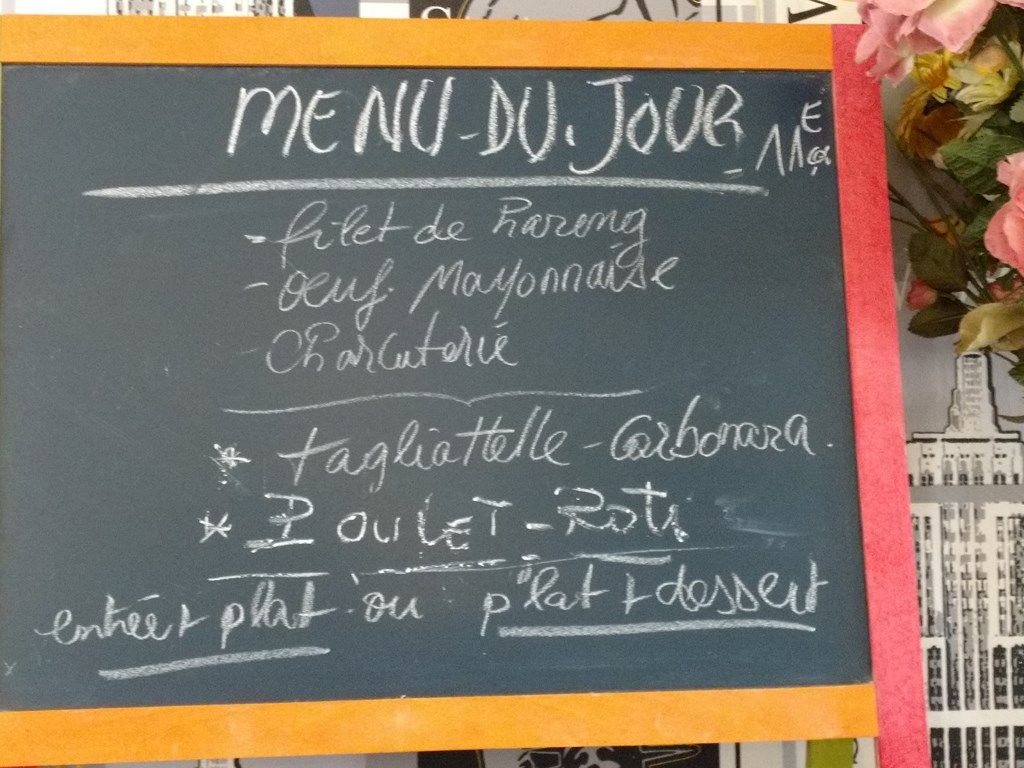 MENU-DU.JOUR 11E
- filet de hareng
- oeuf. Mayonnaise
- Charcuterié
* tagliattelle - Carbonara.
* POULET - Roti
entrée + plat ou plat + dessert